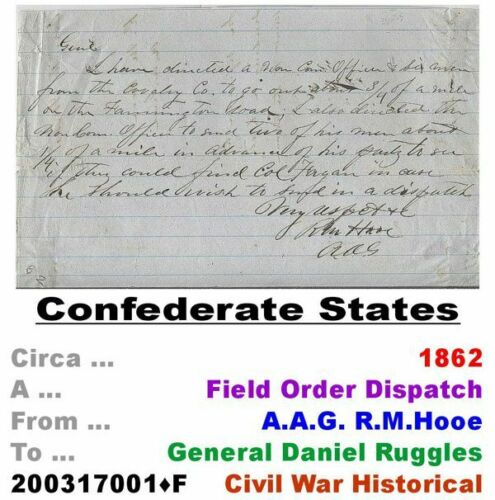 Genl
I have directed a Non Com. Officer & six men
from the Cavalry Co. to go out 3/4 of a mile
on the Farmington road, I also directed the
Non Com. Officer to send two of his men about
1/4 of a mile in advance of his party to see
if they could find Col Fagan in case
he should wish to send in a dispatch
Very respct &c
R M Hooe
AAG
Confederate States
Circa ... 1862
A ... Field Order Dispatch
From ... A.A.G. R.M.Hooe
To ... General Daniel Ruggles
200317001♦F Civil War Historical